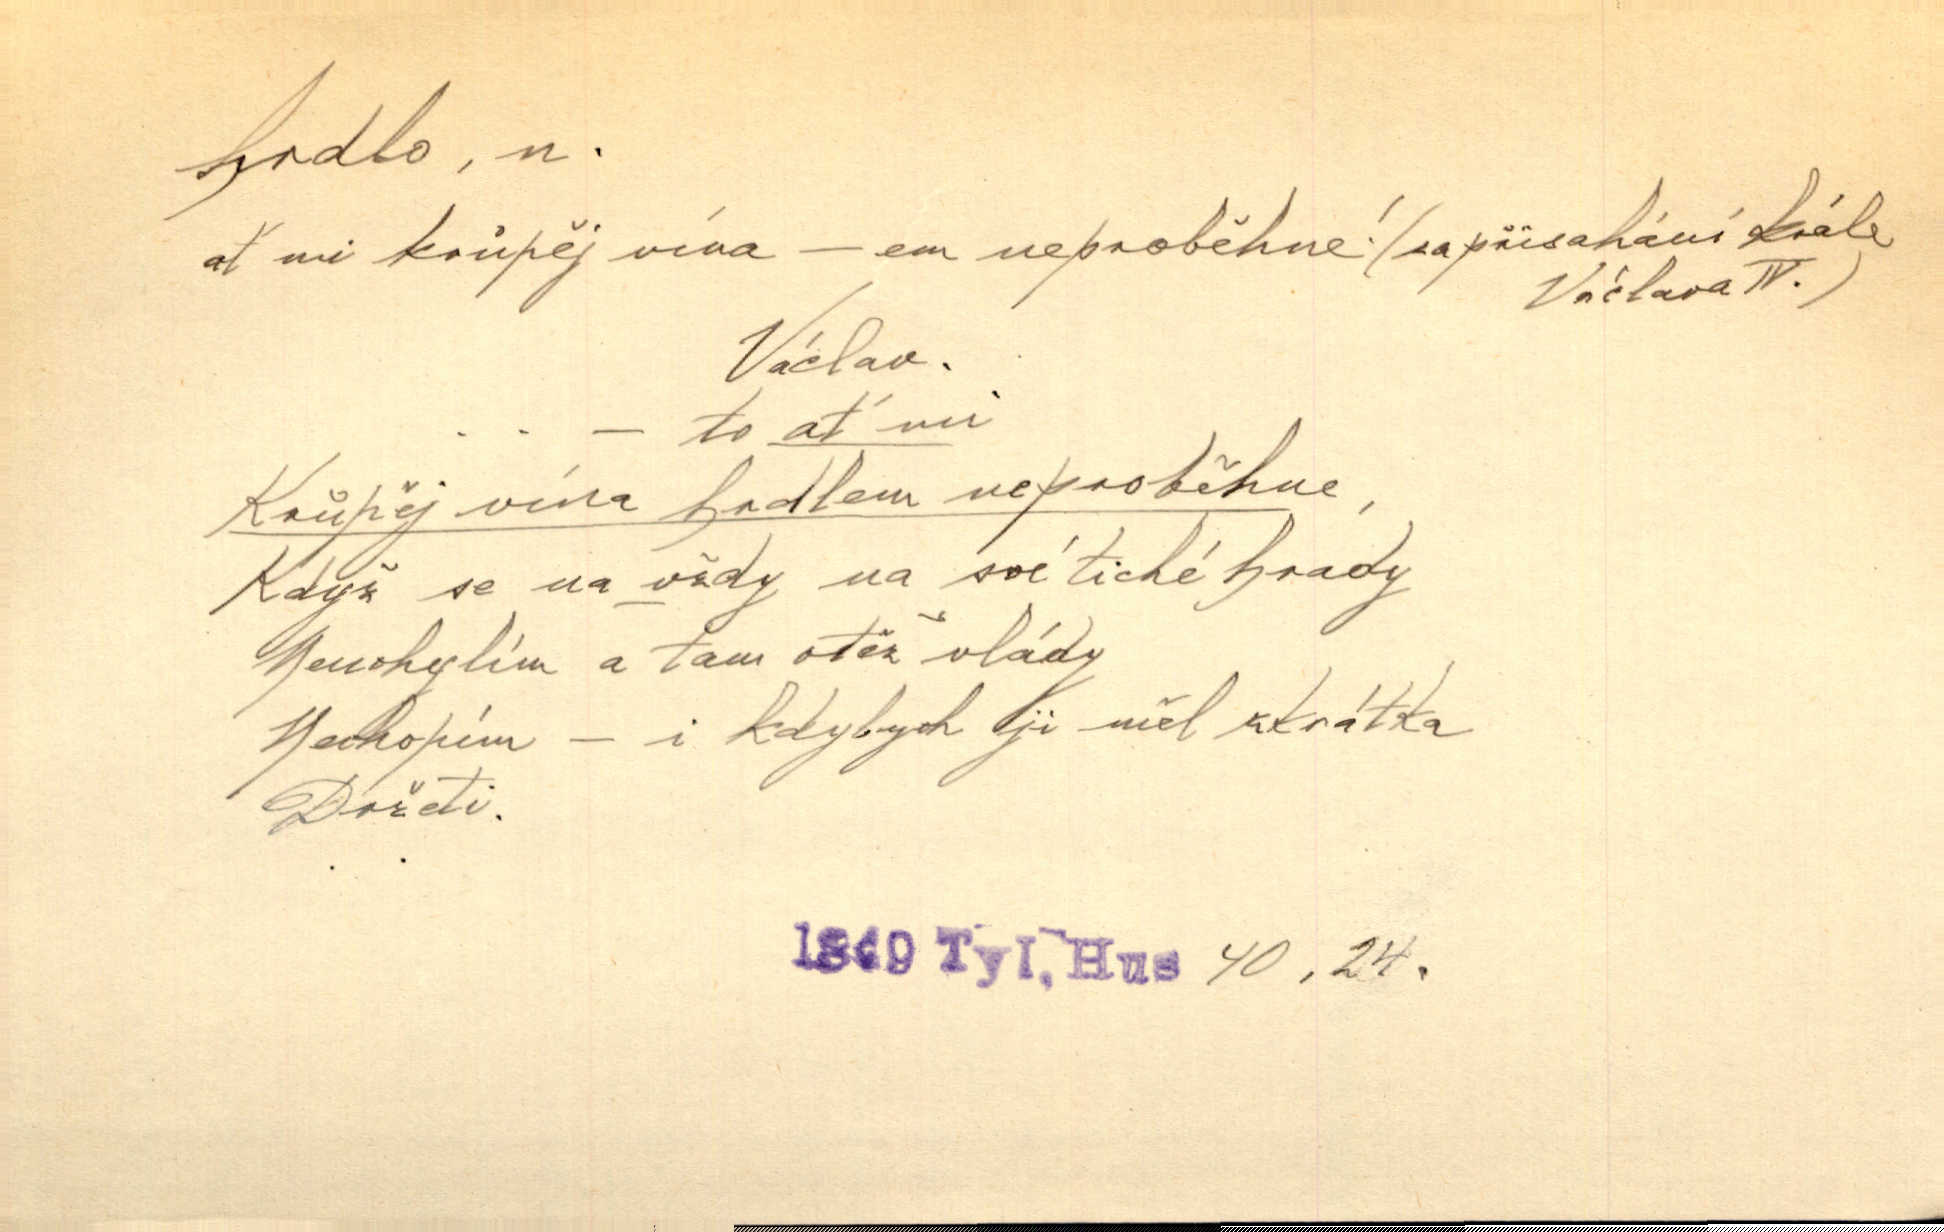 hrdlo, n.
ať mi krůpěj vína — em neproběhne! (zapřísahání krále
Václava IV.)
Václav.
. . — to ať mi
Krůpěj vína hrdlem neproběhne,
Když se na vždy na své tiché hrady
Neuchylím a tam otěž vlády
Nechopím — i kdybych ji měl zkrátka
Držeti.
. .
1849 Tyl, Hus 40, 24.